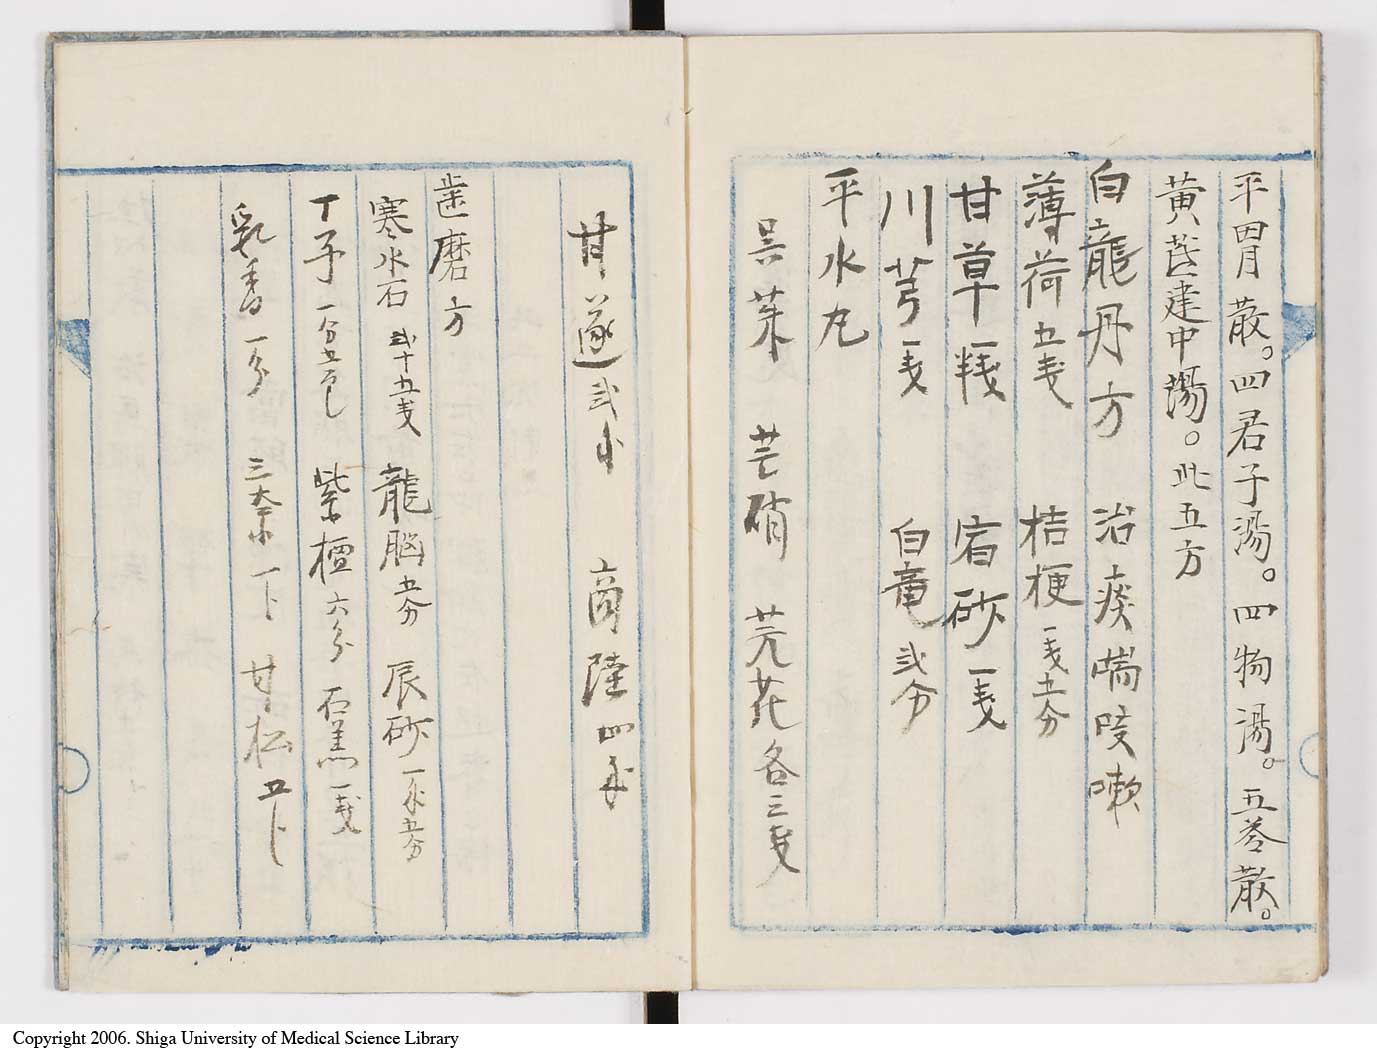 平胃散。四君子湯。四物湯。五苓散。
黄芪建中湯。此五方
白龍丹方 治痰喘咳嗽
薄荷五戔 桔梗一戔五分
甘草一戔 宿砂一戔
川芎一戔 白竜弐分
平水丸
呉茱 芒硝 芫花各三戔
甘遂弐 商陸四
歯磨方
寒水石弐十五戔 龍脳五分 辰砂一五分
丁子一分五 紫檀六分 石羔一戔
乳香一分 三奈 甘松
Copyright 2006. Shiga University of Medical Science Library